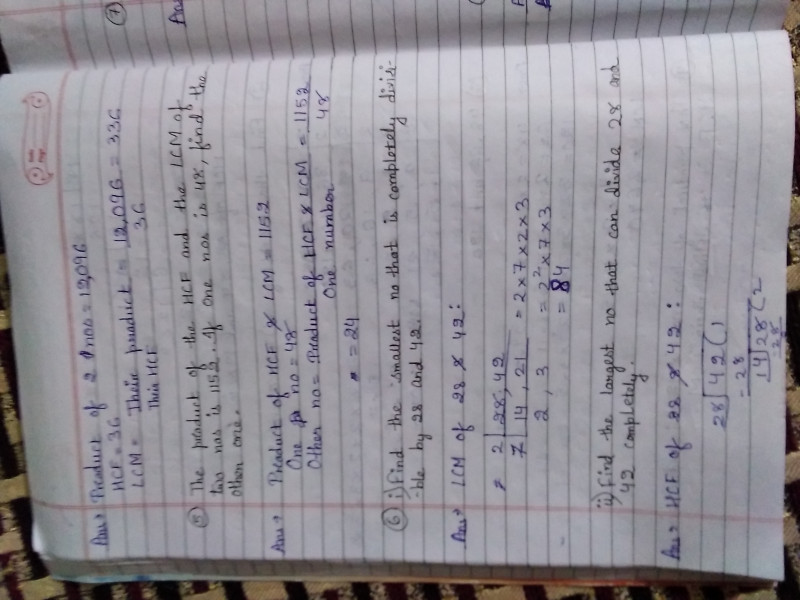 Ans→ Product of 2 nos = 12,096
HCF = 36
LCM = Their product = 12,096 = 336
Their HCF 36
⑤ The product of the HCF and the LCM of
two nos is 1152. If one nos is 48, find the
other one.
Ans→ Product of HCF & LCM = 1152
One no = 48
Other no = Product of HCF & LCM = 1152
One number 48
" = 24
⑥ i) Find the smallest no that is completely divisi-
-ble by 28 and 42.
Ans→ LCM of 28 & 42:
2 28, 42 = 2 × 7 × 2 × 3
7 14, 21 = 2² × 7 × 3
2, 3 = 84
ii) Find the largest no that can divide 28 and
42 completely.
Ans→ HCF of 28 & 42:
28 42 ( 1
- 28
14 28 ( 2
- 28
⑦
Ans